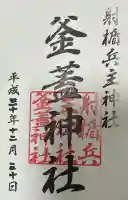 射楯兵主神社
釜蓋神社
平成三十年十二月二十日
射楯兵
主神社
釜蓋
神社